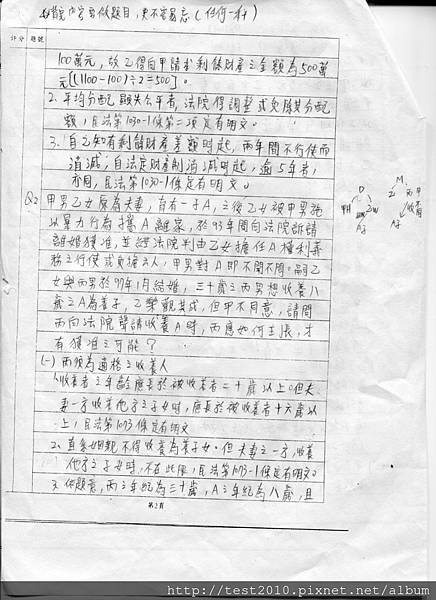 內容當做題目,更不容易忘(任何一科)
評分 題號
100萬元,故乙得向甲請求剩餘財產之金額為500萬
元[(1100-100)÷2=500]。
2. 平均分配顯失公平者,法院得調整或免除其分配
額,民法第1030-1條第二項定有明文。
3. 自乙知有剩餘財產差額時起,兩年間不行使而
消滅;自法定財產制消滅時起,逾5年者,
亦同,民法第1030-1條定有明文。
Q2 甲男乙女原為夫妻,育有一子A,之後乙女被甲男施
以暴力行為攜A離家,於93年間向法院訴請
離婚獲准,並經法院判由乙女擔任A權利義
務之行使或負擔之人,甲男對A即不聞不問。嗣乙
女與丙男於97年1月結婚,三十歲之丙男想收養八
歲之A為養子,乙樂觀其成,但甲不同意,請問
丙向法院聲請收養A時,丙應如何主張,才
有獲准之可能?
(一) 丙須為適格之收養人
1. 收養者之年齡應長於被收養者二十歲以上。但夫
妻一方收養他方之子女時,應長於被收養者十六歲以
上,民法第1073條定有明文
2. 直系姻親不得收養為養子女。但夫妻之一方,收養
他方之子女時,不在此限,民法第1073-1條定有明文。
3. 依題意,丙之年紀為三十歲,A之年紀為八歲,且
第2頁
http://test2010.pixnet.net/album